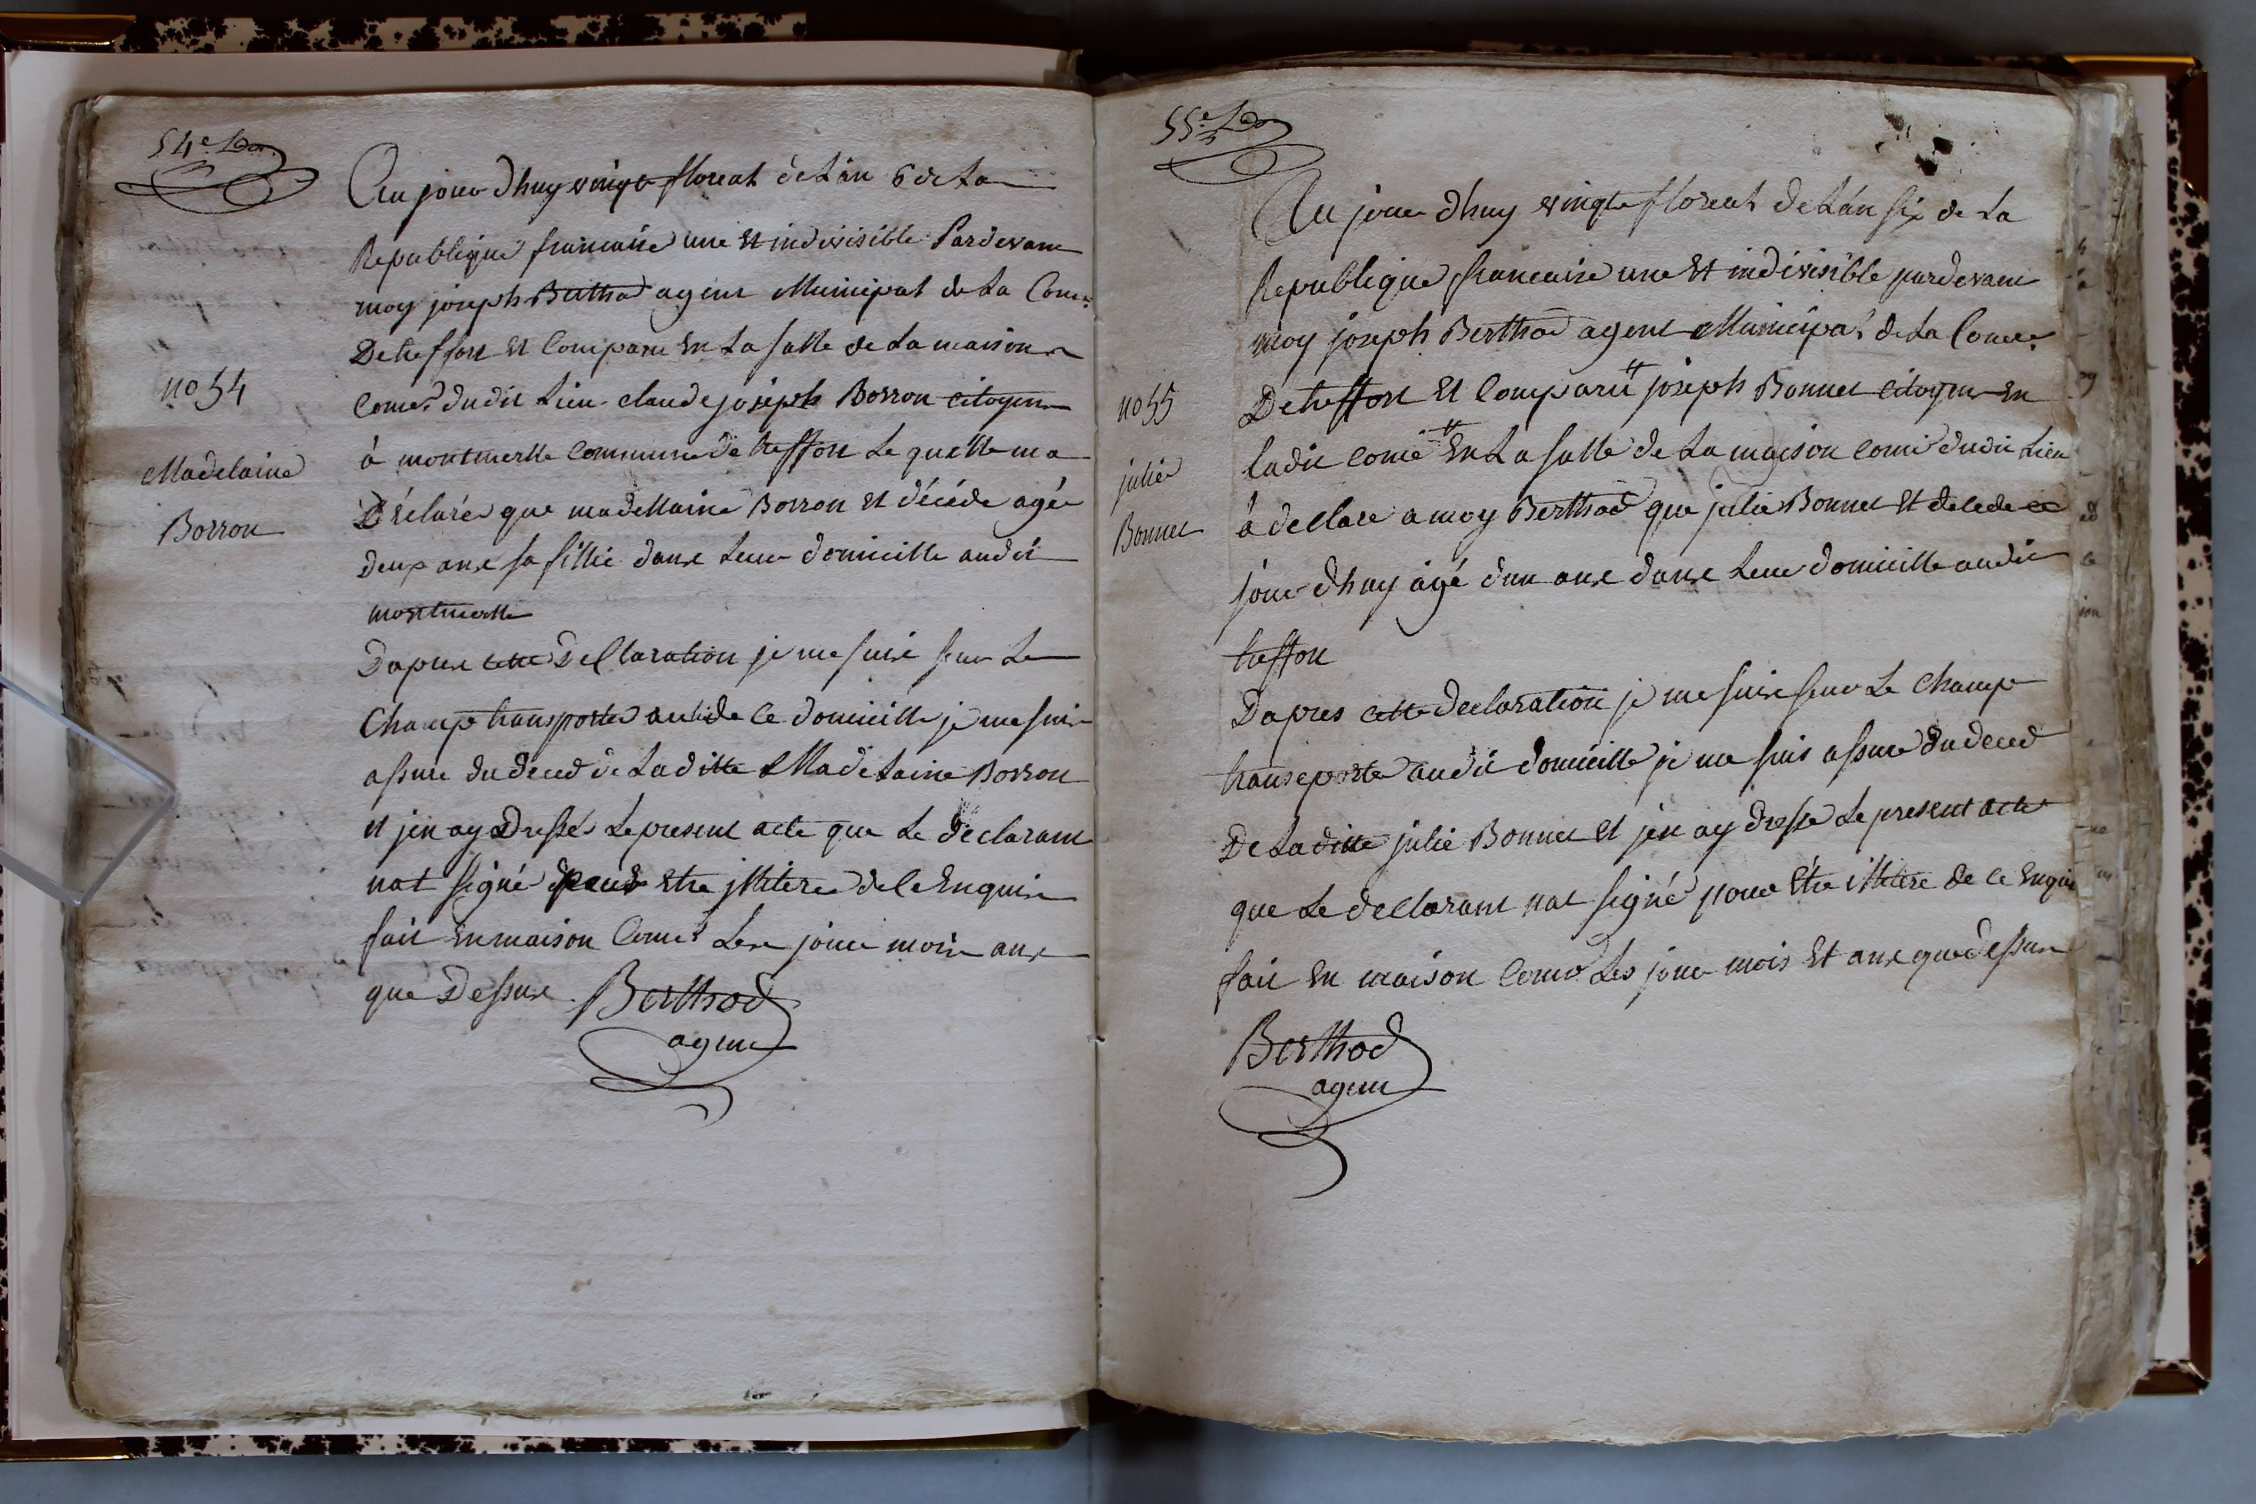 54e
Au jour dhuy vingt floreal de Lan 6 de La
Republique francaise une Et indivisible Pardevant
moy joseph Berthod agent Municipal de La Come
De treffort Et Comparu En La salle de La maison
come dudit Lieu claude joseph Borron citoyen
à montmerle commune de treffort Le quelle ma
no 54
Madelaine
Borron
Déclaré que madellaine Borron Et décéde agée
deux ans sa fillie dans Leur domicille audit
montmerle
Dapres cette Declaration je me suis sur Le
Champ transporte au lide ce domicille je me suis
assure du deced de Laditte Madelaine Borron
et jen ay Dressé Le present acte que Le declarant
nat signé pour Etre illitere de ce Enquis
fait En maison Come Les jour mois ans
que Dessus Berthod
agent
55e
Au jour dhuy vingt floreal de Lan six de La
Republique francaise une Et indivisible pardevant
moy joseph Berthod agent Municipal de La Come
De treffort Et Comparu joseph Bonnet citoyen En
ladit come En La salle de La maison come dudit Lieu
no 55
julie
Bonnet
à declare a moy Berthod que julie Bonnet Et decede ce
jour dhuy agé dun ans dans Leur domicille audit
treffort
Dapres cette declaration je me suis sur Le champ
transporte audit domicille je me suis assure du deced
De Laditte julie Bonnet Et jen ay dresse Le present acte
que Le declarant nat signé pour Etre illitere de ce Enquis
fait En maison come Les jour mois Et ans que dessus
Berthod
agent